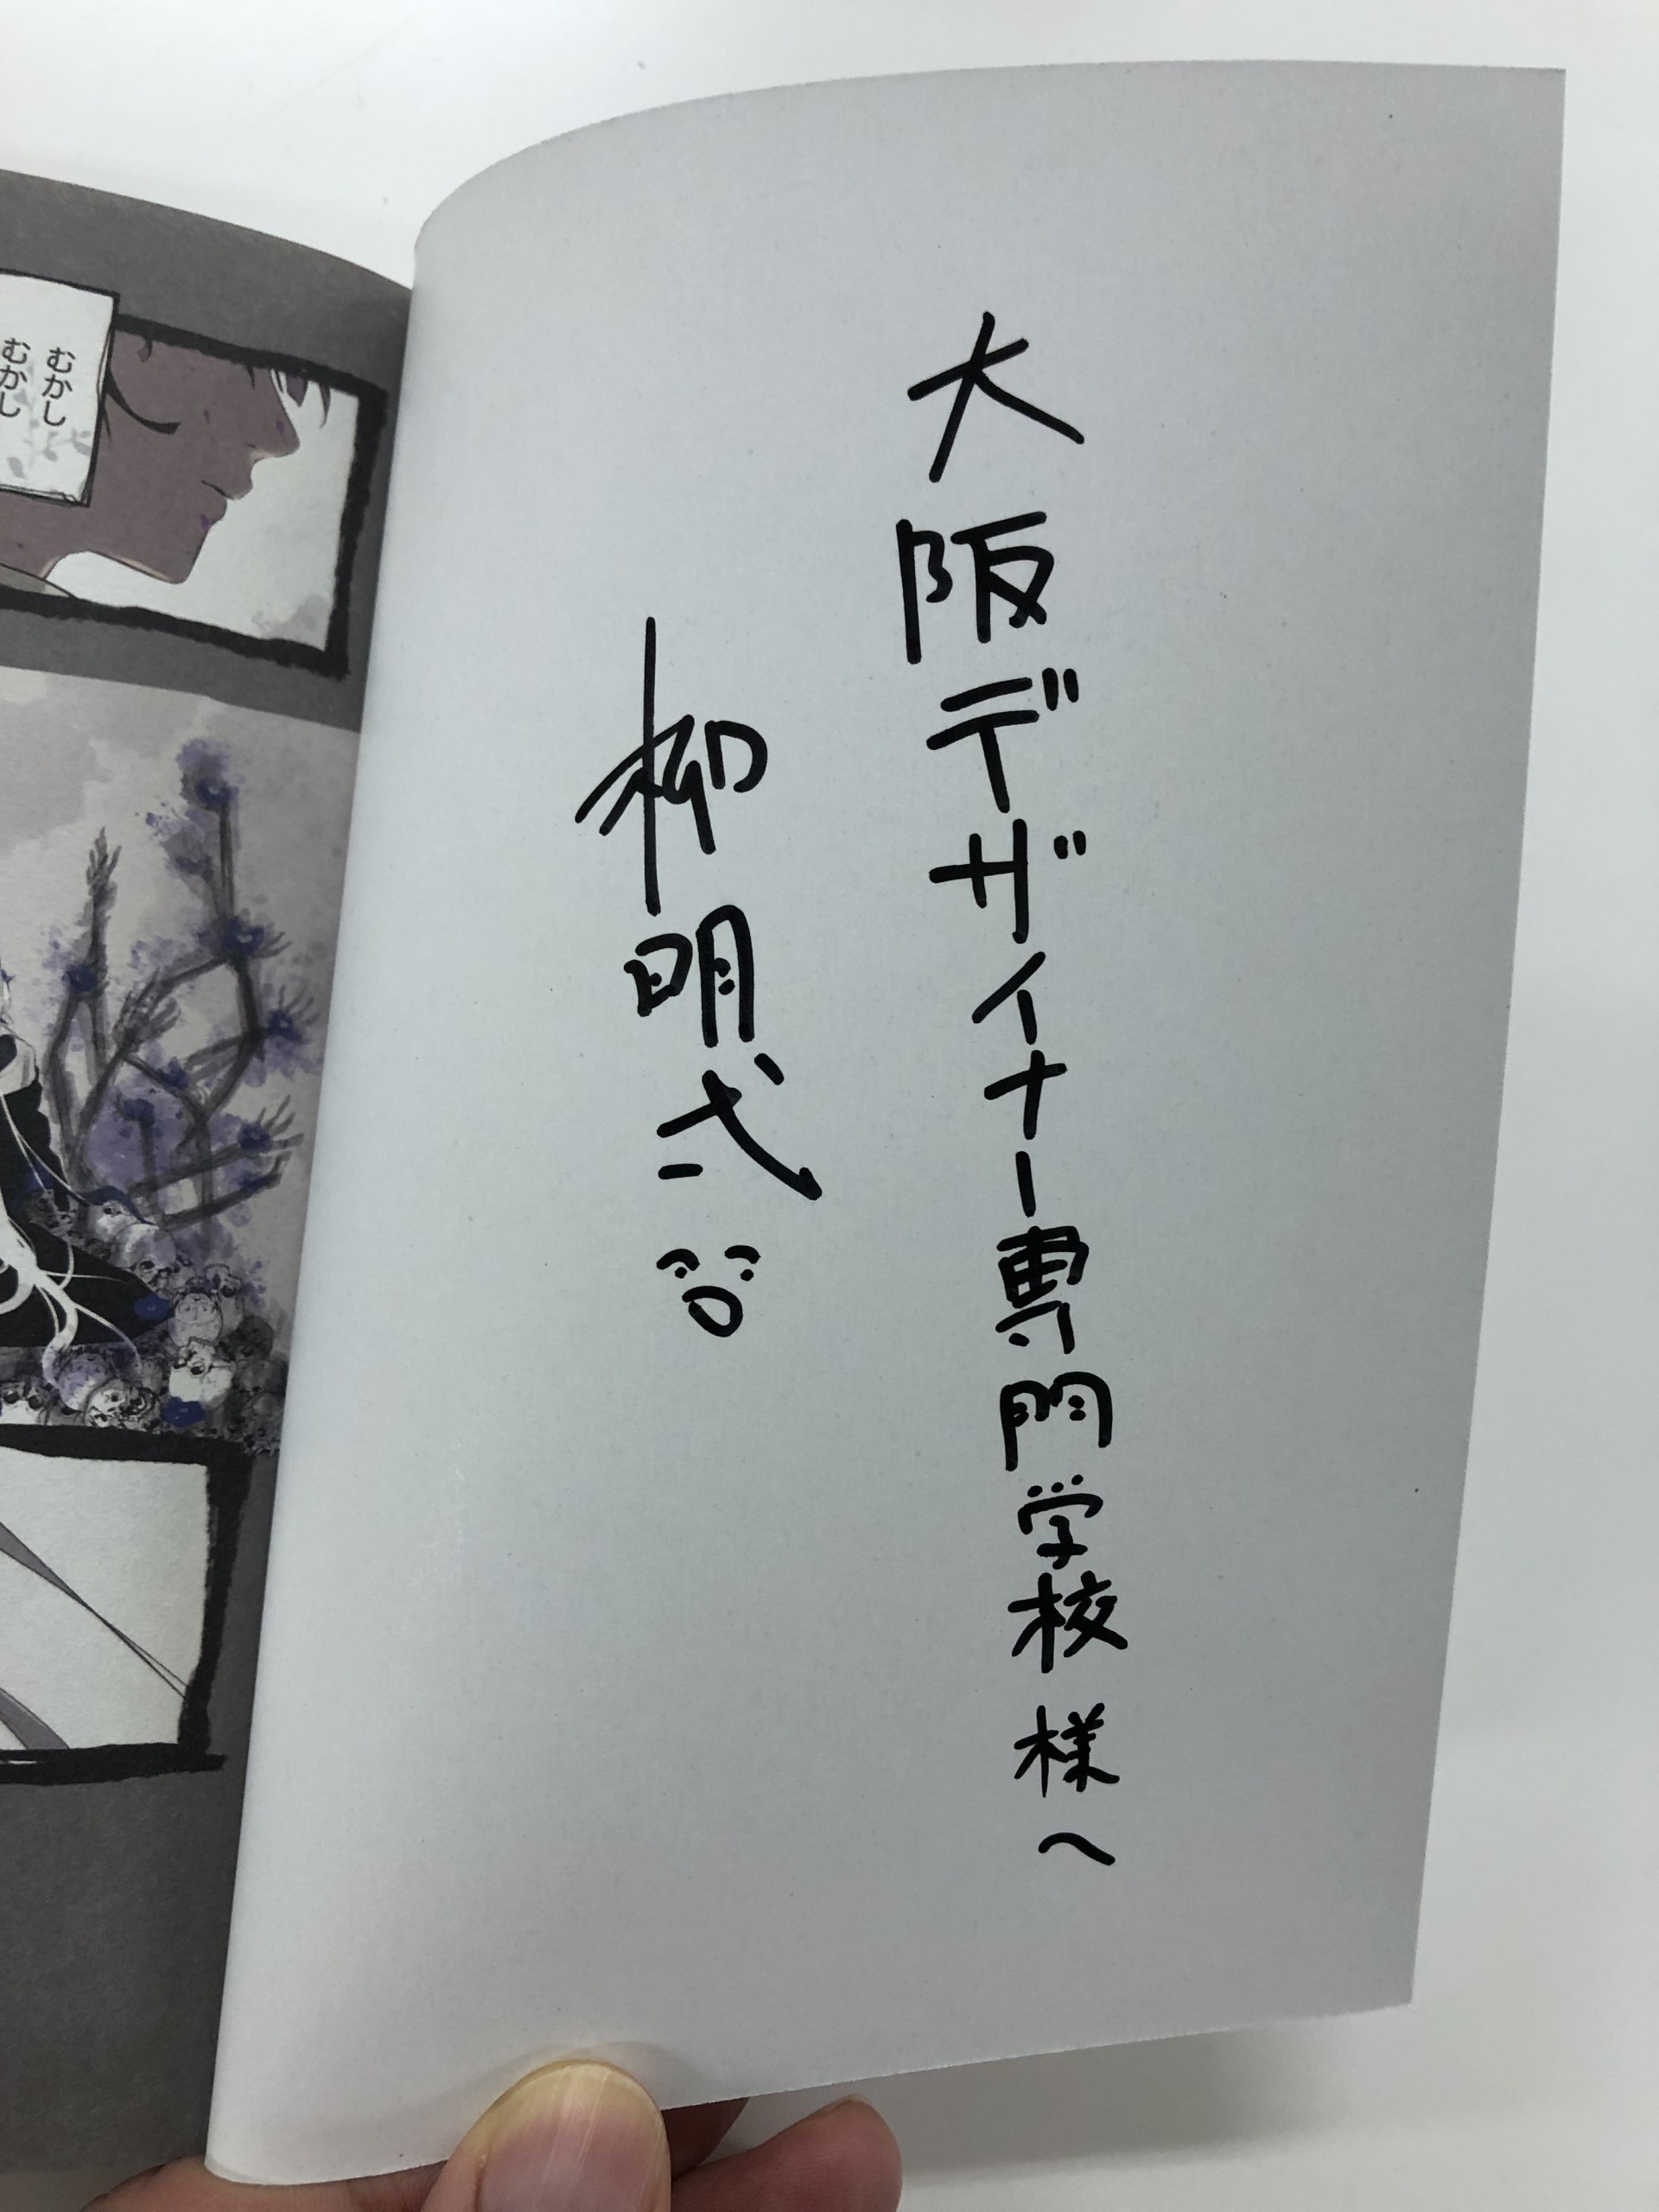 大阪デザイナー専門学校様へ
柳明弐
むかし
むかし